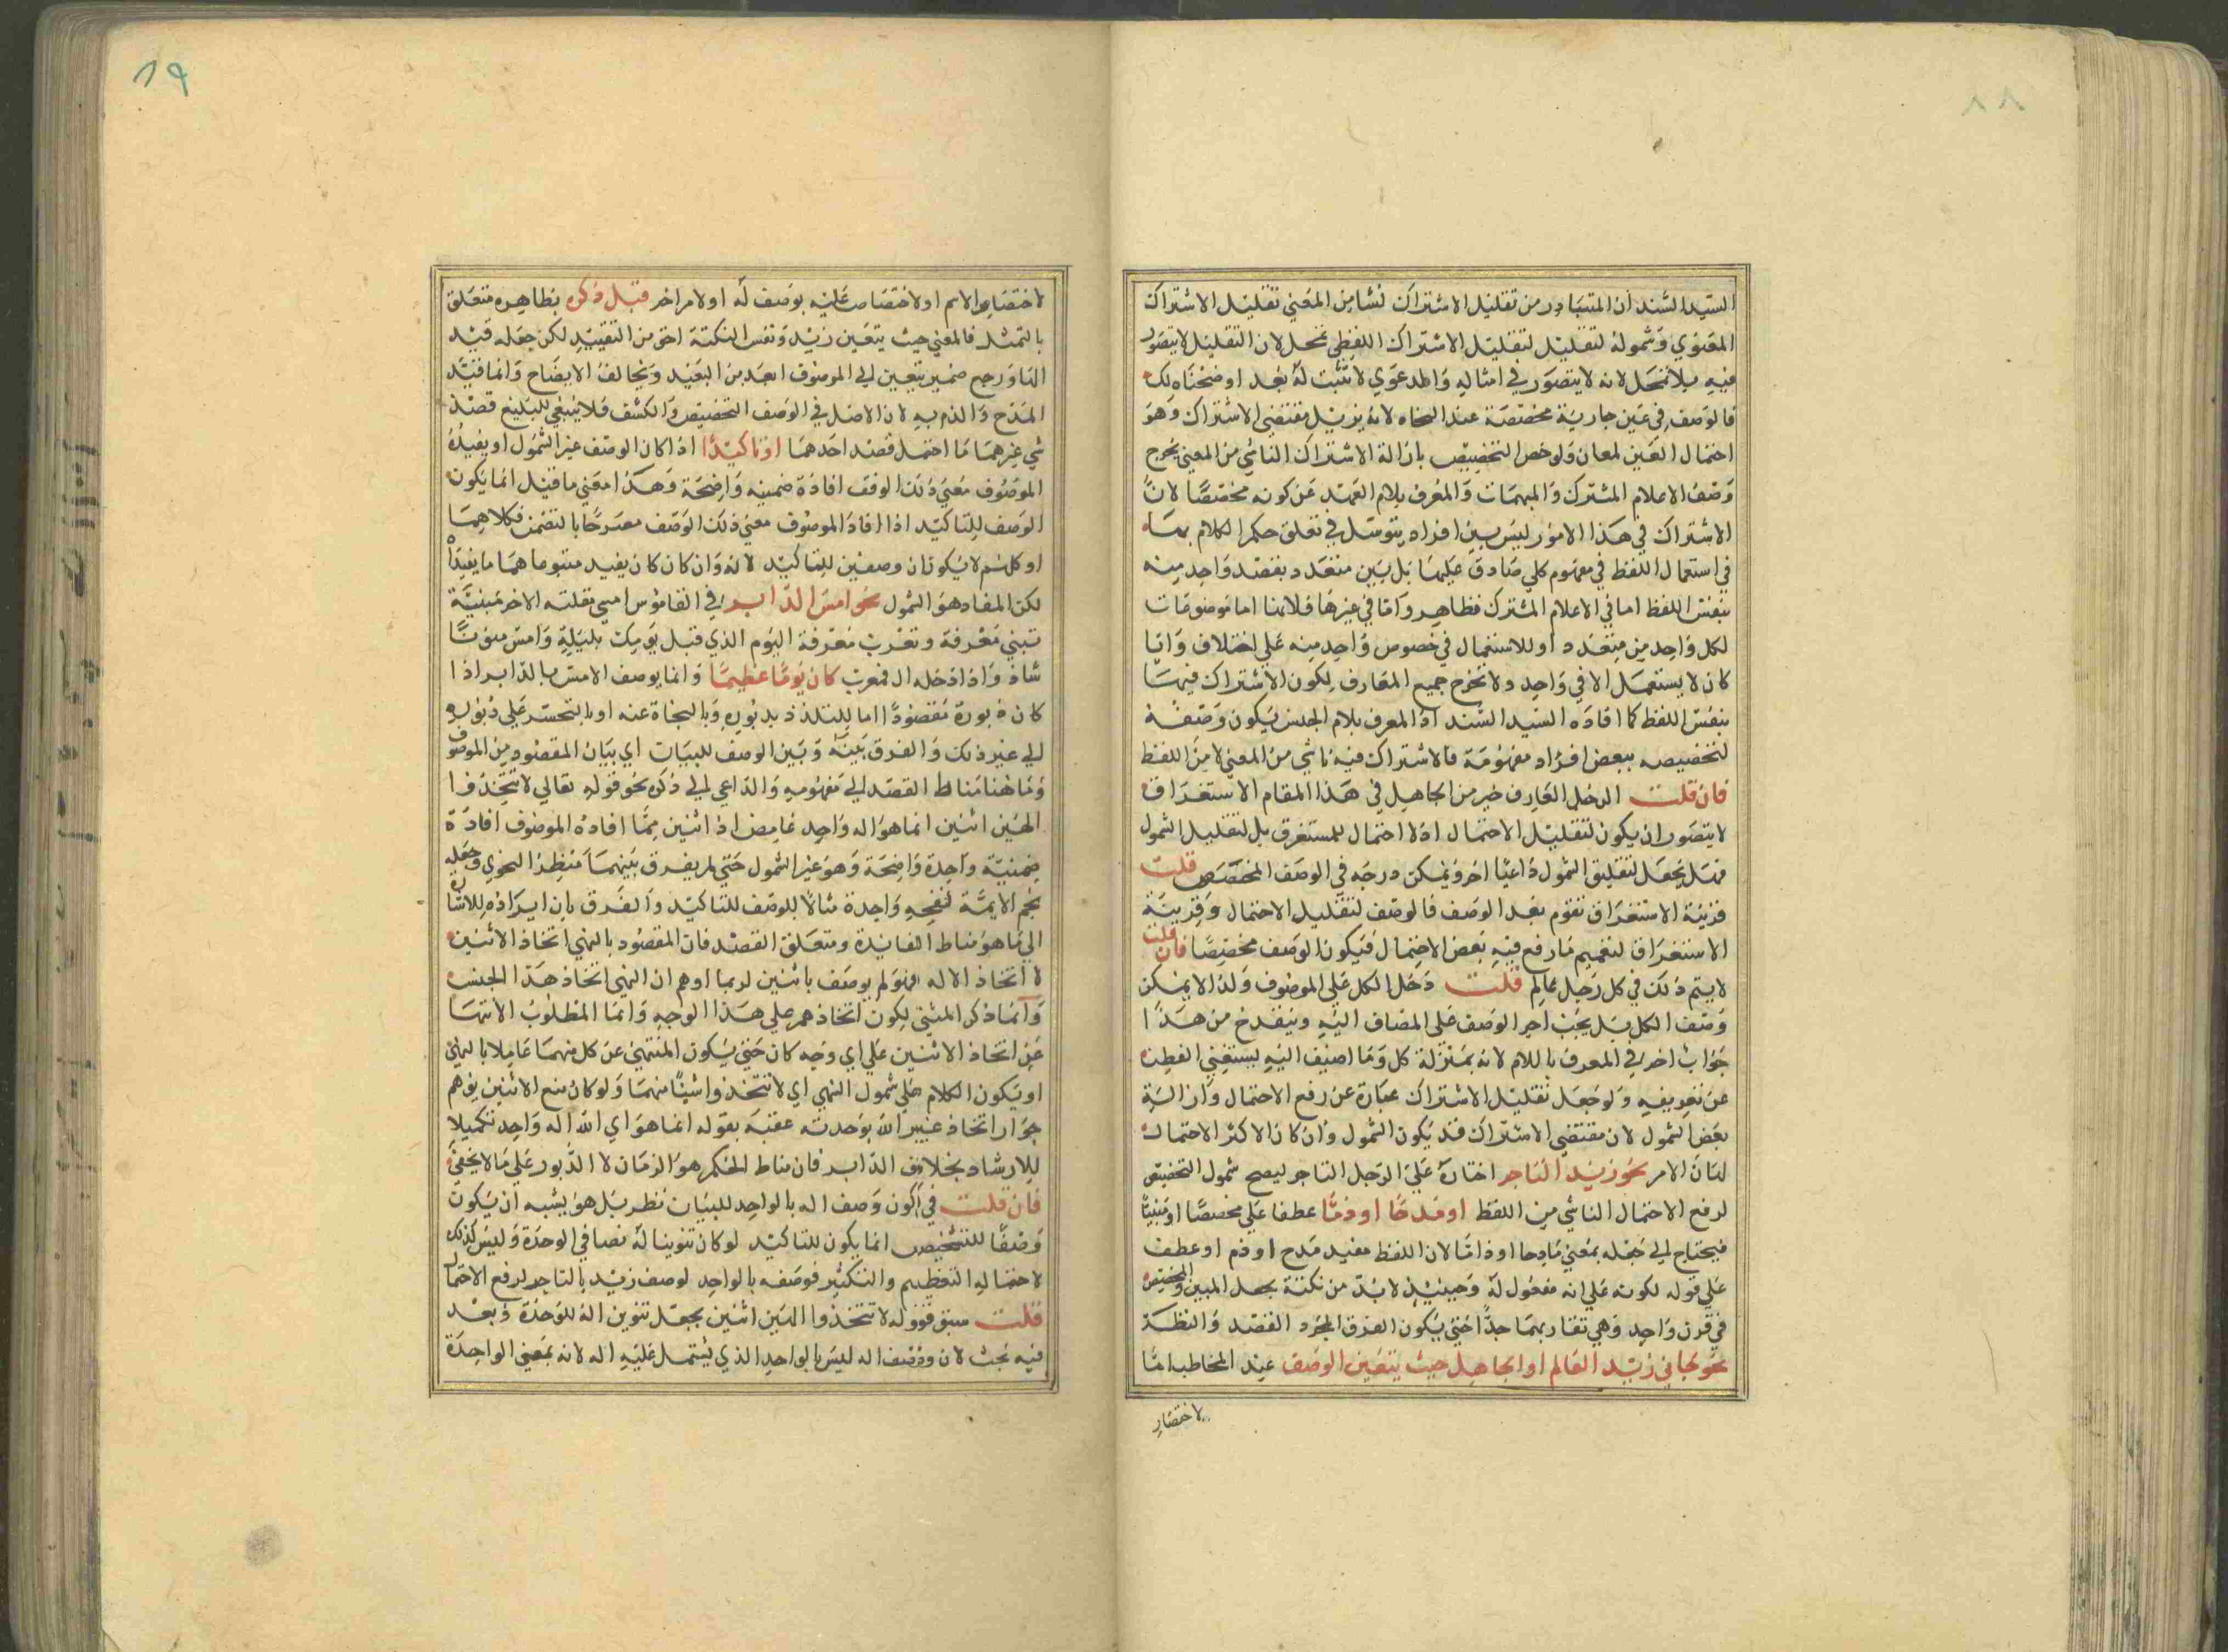 ٨٨
السيد السند ان المتبادر من تقليل الاشتراك نشا من المعني تقليل الاشتراك
المعنوي وشموله لتقليل لتقليل الاشتراك اللفظي تمحل لان التقليل لا يتصور
فيه بلا تمحل لانه لا يتصور في امثاله والمدعوي لا تثبت له بعد اوضحناه لك
فالوصف في عين جارية مخصصة عند النحاه لانه يزيل مقتضي الاشتراك وهو
احتمال العين لمعان ولو خص التخصيص بازالة الاشتراك الناشي من المعني يخرج
وصف الاعلام المشترك والمبهمات والمعرف بلام العهد عن كونه مخصصا لان
الاشتراك في هذا الامور ليس بين افراد يتوسل في تعلق حكم الكلام بها
في استعمال اللفظ في مفهوم كلي صادق عليها بل بين متعدد بقصد واحد منه
بنفس اللفظ اما في الاعلام المشترك فظاهر واما في غيرها فلانها اما موضوعات
لكل واحد من متعدد او للاستعمال في خصوص واحد منه علي اختلاف وايا
كان لا يستعمل الا في واحد ولا تخرج جميع المعارف لكون الاشتراك فيها
بنفس اللفظ كما افاده السيد السند اذ المعرف بلام الجنس يكون وصفه
لتخصيصه ببعض افراد مفهومه فالاشتراك فيه ناشي من المعني لا من اللفظ
فان قلت الرجل العارف خير من الجاهل في هذا المقام الاستغراق
لا يتصور ان يكون لتقليل الاحتمال اذ لا احتمال للمستغرق بل لتقليل الشمول
فهل يجعل لتقليل الشمول داعيا اخر ويمكن درجه في الوصف المخصص قلت
قرينة الاستغراق تقوم بعد الوصف فالوصف لتقليل الاحتمال وقرينة
الاستغراق لتعميم ما رفع فيه بعض الاحتمال فيكون الوصف مخصصا فان قلت
لا يتم ذلك في كل رجل عالم قلت دخل الكل علي الموصوف ولذا لا يمكن
وصف الكل بل يجب اجر الوصف علي المضاف اليه وينقدح من هذا
جواب اخر في المعرف باللام لانه بمنزلة كل وما اضيف اليه يستغني الفطن
عن تعريفه ولو جعل تقليل الاشتراك عبارة عن رفع الاحتمال وازالة
بعض الشمول لان مقتضي الاشتراك قد يكون الشمول وان كان الاكثر الاحتمال
لهان الامر نحو زيد التاجر اختاره علي الرجل التاجر ليصح شمول التخصيص
لرفع الاحتمال الناشي من اللفظ او مدحا او ذما عطفا علي مخصصا او مبنيا
فيحتاج الي جعله بمعني مادحا او ذاما لان اللفظ مفيد مدح او ذم او عطف
علي قوله لكونه علي انه مفعول له وحينئذ لا بد من نكتة بجعل المبين والمخصص
في قرن واحد وهي تقاربهما جدا حتي يكون الفرق لمجرد القصد والنظر
نحو جاني زيد العالم او الجاهل حيث يتعين الوصف عند المخاطب اما
لاختصار
٨٩
لاختصار الاسم او لاختصاص عليه بوصف له او لامر اخر قبل ذكره بظاهره متعلق
بالتمثل فالمعني حيث يتعين زيد ونفس النكتة احق من التقييد لكن جعله قيد
النا ورجع ضمير يتعين الي الموصوف ابعد من البعيد ويخالف الايضاح وانما قيد
المدح والذم به لان الاصل في الوصف التخصيص والكشف فلا ينبغي للبليغ قصد
شي غيرهما ما احتمل قصد احدهما او تاكيدا اذا كان الوصف عين الشمول او يفيده
الموصوف معني ذلك الوقف افادة ضمنيه واضحة وهكذا معني ما قيل انما يكون
الوصف للتاكيد اذا افاد الموصوف معني ذلك الوصف مصرحا بالتضمن فكلاهما
او كلهم لا يكونان وصفين للتاكيد لانه وان كان كان يفيد متبوعاهما ما يفيدا
لكن المفاد هو الشمول نحو امس الدابر في القاموس امس نقلته الاخر مبنية
تبني معرفة وتعرب معرفة اليوم الذي قبل يومك بليلة وامس منونا
شاذ واذا دخله ال فمعرب كان يوما عظيما وانما يوصف الامس بالدابر اذا
كان دبوره مقصودا اما للتلذذ بدبوره وبالنجاة عنه او بالتحسر علي دبوره
الي غير ذلك والفرق بينه وبين الوصف للبيان اي بيان المقصود من الموصوف
وما هنا مناط القصد الي مفهومه والداعي الي ذكره نحو قوله تعالي لا تتخذوا
الهين اثنين انما هو اله واحد غامض اذ اثنين مما افاده الموصوف افادة
ضمنية واحدة واضحة وهو عين الشمول حتي لم يفرق بينهما منظر النحوي وجعله
نجم الايمة لنفحه واحدة مثالا للوصف للتاكيد والفرق بان ايراده للاشارة
الي ما هو مناط الفائدة ومتعلق القصد فان المقصود بالنهي اتخاذ الاثنين
لا اتخاذ الاله فهو لم يوصف باثنين لربما اوهم ان النهي اتخاذ هذا الجنس
وانما ذكر المثني لكون اتخاذهم علي هذا الوجه وانما المطلوب الانتها
عن اتخاذ الاثنين علي اي وجه كان حتي يكون المنتهي عن كل منهما عاملا بالنهي
او يكون الكلام علي شمول النهي اي لا تتخذوا شيئا منهما ولو كان منع الاثنين يوهم
جواز اتخاذ غيير الله بوحدته عقبه بقوله انما هو اي الله اله واحد تكميلا
للارشاد بخلاف الدابر فان مناط الحكم هو الزمان لا الدبور علي ما لا يخفي
فان قلت في كون وصف اله بالواحد للبيان نظر بل هو يشبه ان يكون
وصفا للتشخيص انما يكون للتاكيد لو كان تنوينا له نصا في الوحدة وليس كذلك
لاحتماله التعظيم والتكثير فوصفه بالواحد لوصف زيد بالتاجر لرفع الاحتمال
قلت سبق قوله لا تتخذوا الهين اثنين بجعل تنوين اله للوحدة وبعد
فيه بحث لان وصف اله ليس بالواحد الذي يشتمل عليه اله لانه بمعني الواحدة